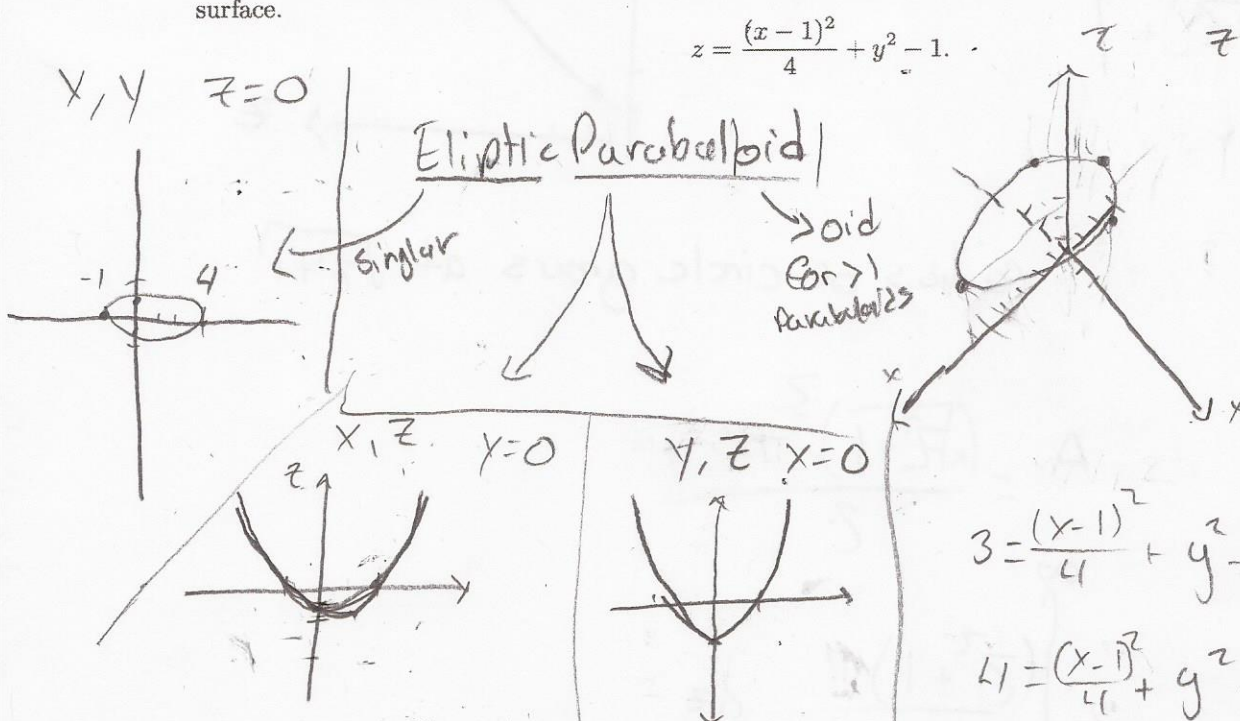 surface.
z = \frac{(x-1)^2}{4} + y^2 - 1.
X, Y Z=0
Eliptic Paraballoid
singlur
oid
for >1
Parabaloids
-1 4
z
z
x
y
X, Z Y=0
Y, Z X=0
z
3 = \frac{(x-1)^2}{4} + y^2 -
4 = \frac{(x-1)^2}{4} + y^2